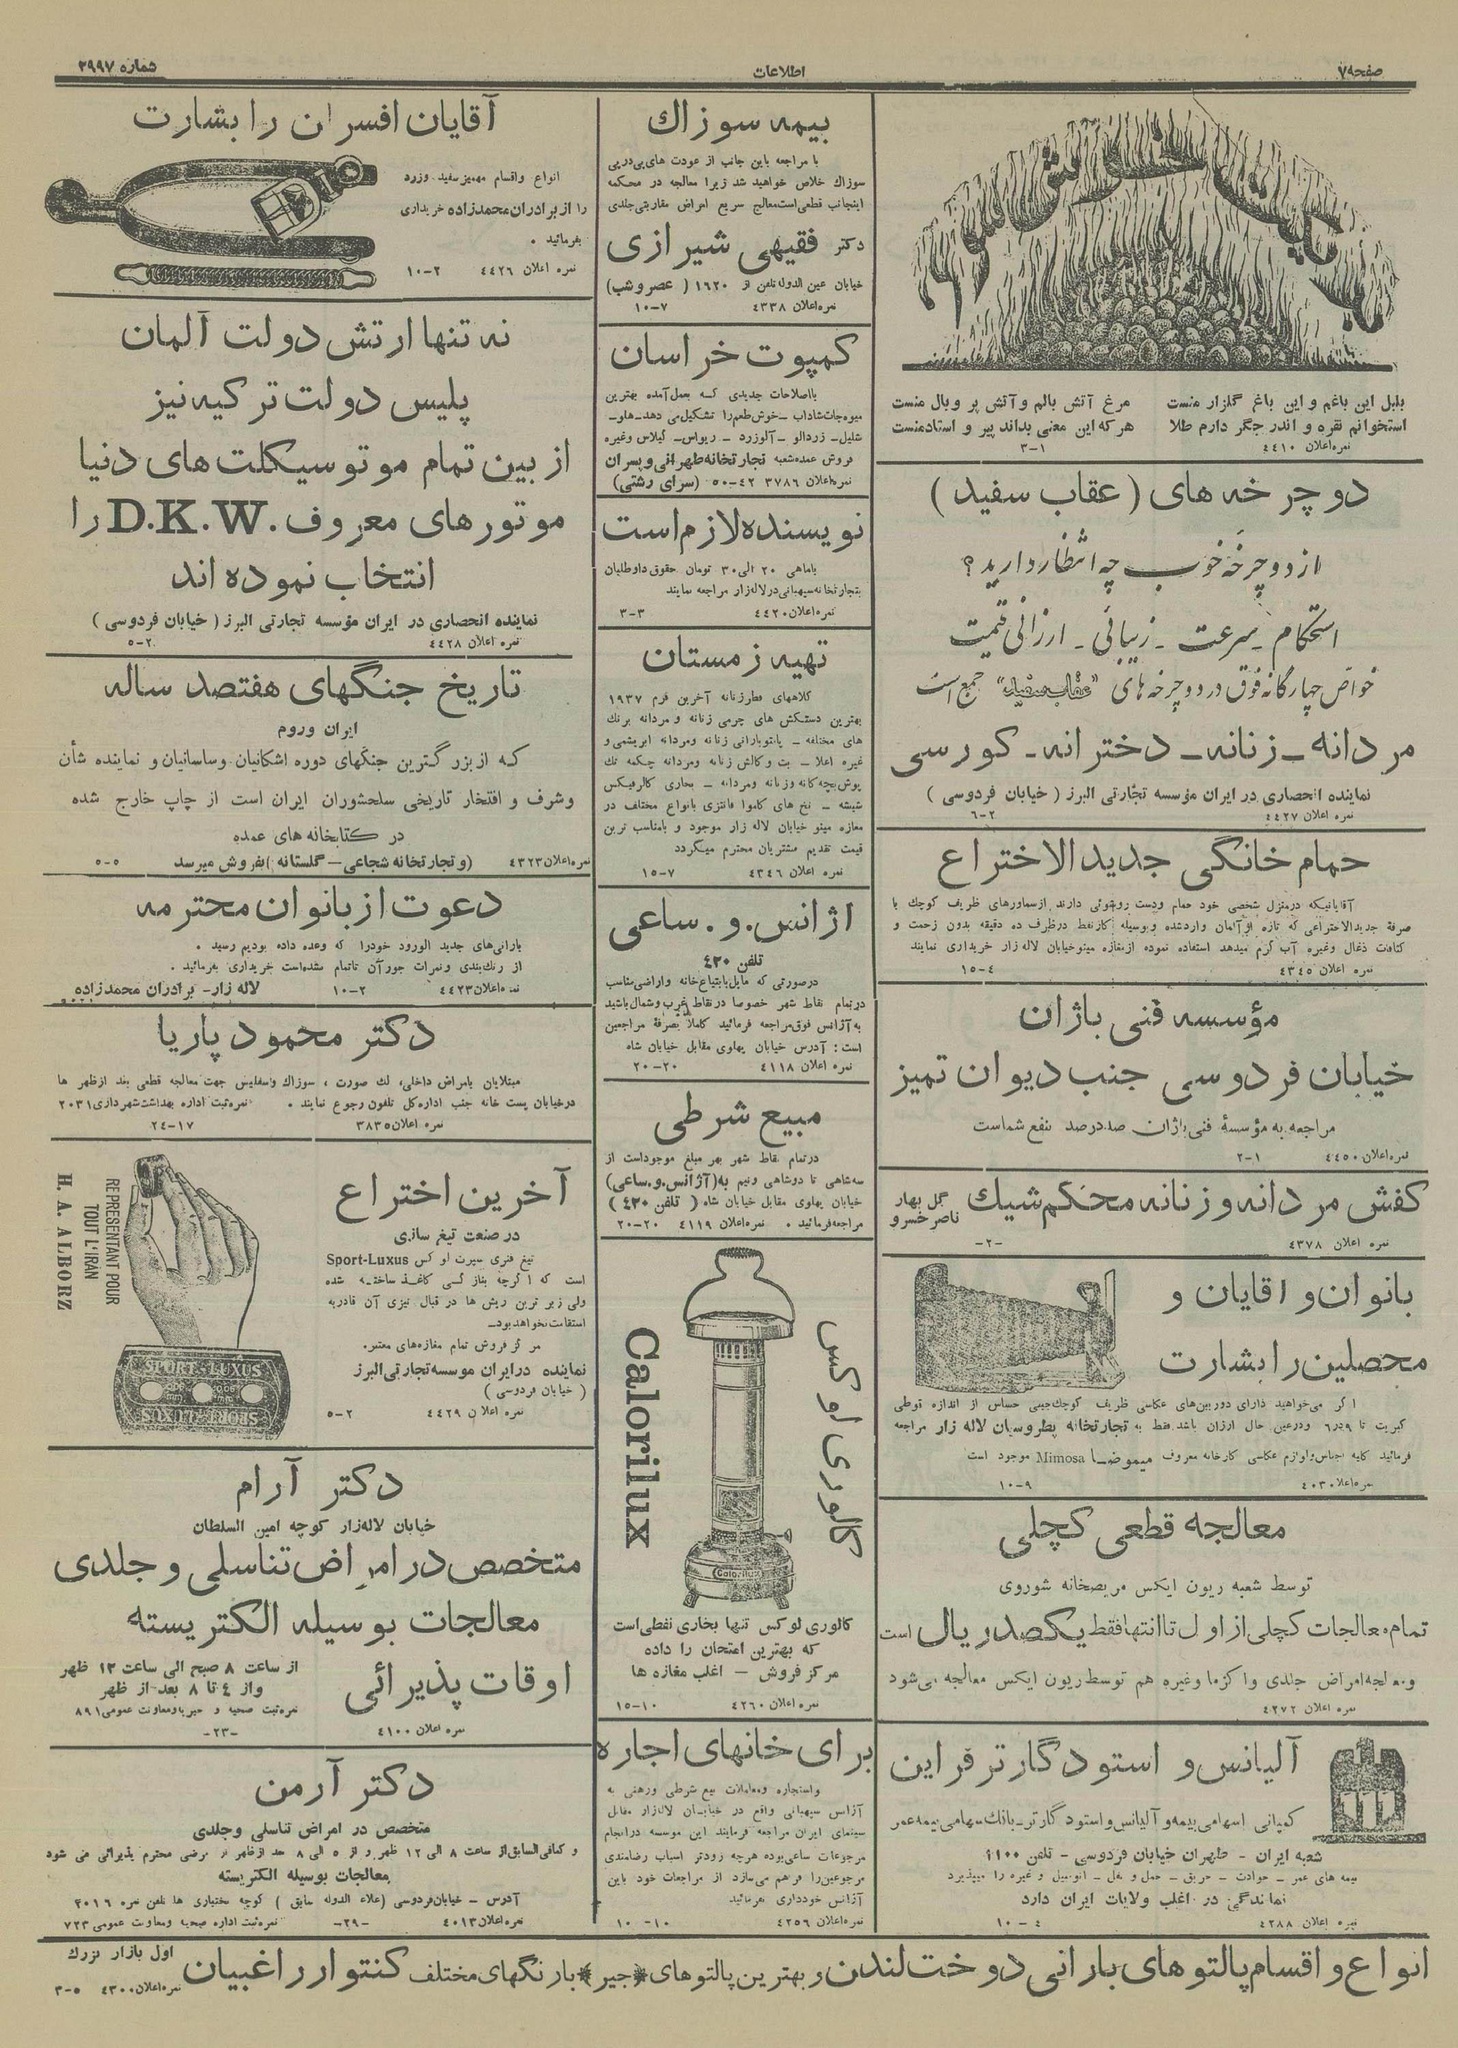 صفحه ۷
اطلاعات
شماره ۲۹۹۷
بلبل این باغم و این باغ گلزار منست
مرغ آتش بالم و آتش پر و بال منست
استخوانم نقره و اندر جگر دارم طلا
هر که این معنی بداند پیر و استاد منست
نمره اعلان ۴۴۱۰
۳-۱
دوچرخه های (عقاب سفید)
از دوچرخهٔ خوب چه انتظار دارید؟
استحکام - سرعت - زیبائی - ارزانی قیمت
خواص چهارگانه فوق در دوچرخه های "عقاب سفید" جمع است
مردانه - زنانه - دخترانه - کورسی
نماینده انحصاری در ایران مؤسسه تجارتی البرز (خیابان فردوسی)
نمره اعلان ۴۴۲۷
۶-۲
حمام خانگی جدید الاختراع
آقایانیکه در منزل شخصی خود حمام و دست روشوئی دارند از سماورهای ظریف کوچک با
صرفهٔ جدیدالاختراعی که تازه از آلمان وارد شده و بوسیله گاز نفط در ظرف ده دقیقه بدون زحمت و
کثافت ذغال وغیره آب گرم میدهد استفاده نموده از مغازه مینو خیابان لاله زار خریداری نمایند
نمره اعلان ۴۳۴۵
۱۵-۴
مؤسسه فنی باژان
خیابان فردوسی جنب دیوان تمیز
مراجعه به مؤسسهٔ فنی باژان صددرصد بنفع شماست
نمره اعلان ۴۴۵۰
۲-۱
کفش مردانه و زنانه محکم شیک
گل بهار
ناصرخسرو
نمره اعلان ۴۳۷۸
-۲-
بانوان و اقایان و
محصلین را بشارت
اگر میخواهید دارای دوربین‌های عکاسی ظریف کوچک جیبی حساس از اندازه قوطی
کبریت تا ۹در۶ ودرعین حال ارزان باشد فقط به تجارتخانه پطروسیان لاله زار مراجعه
فرمائید کلیه اجناس و لوازم عکاسی کارخانه معروف میموضا Mimosa موجود است
نمره اعلا۴۰۳۰
۱۰-۹
معالجه قطعی کچلی
توسط شعبه ریون ایکس مریضخانه شوروی
تمام معالجات کچلی از اول تا انتها فقط یکصد ریال است
ومعالجه امراض جلدی واکزما وغیره هم توسط ریون ایکس معالجه می شود
نمره اعلان ۴۲۷۲
آلیانس و استودگارتر فراین
کمپانی اسهامی بیمه و آلیانس و استودگارتر - بانک سهامی بیمه عمر
شعبه ایران - طهران خیابان فردوسی - تلفن ۱۱۰۰
بیمه های عمر - حوادث - حریق - حمل و نقل - اتومبیل و غیره را میپذیرد
نمایندگی در اغلب ولایات ایران دارد
نمره اعلان ۴۲۸۸
۱۰-۴
بیمه سوزاک
با مراجعه باین جانب از عودت های پی درپی
سوزاک خلاص خواهید شد زیرا معالجه در محکمه
اینجانب قطعی است معالج سریع امراض مقاربتی جلدی
دکتر فقیهی شیرازی
خیابان عین الدوله تلفن از ۱۶۲۰ (عصر و شب)
نمره اعلان ۴۳۳۸
۱۰-۷
کمپوت خراسان
با اصلاحات جدیدی که بعمل آمده بهترین
میوه جات شاداب - خوش طعم را تشکیل می دهد - هلو -
شلیل - زردالو - آلوزرد - ریواس - گیلاس وغیره
فروش عمده شعبه تجارتخانه طهرانی و پسران
نمره اعلان ۳۷۸۶
۵۰-۴۲ (سرای رشتی)
نویسنده لازم است
باماهی ۲۰ الی ۳۰ تومان حقوق داوطلبان
بتجارتخانه سپهبانی در لاله زار مراجعه نمایند
نمره اعلان ۴۴۲۰
۳-۳
تهیه زمستان
کلاههای فطر زنانه آخرین فرم ۱۹۳۷
بهترین دستکش های چرمی زنانه و مردانه برنک
های مختلفه - پالتو بارانی زنانه ومردانه ابریشمی و
غیره اعلا - بت و کالش زنانه ومردانه چکمه تک
پوش بچه گانه وزنانه ومردانه - بخاری کالرفیکس
شیشه - نخ های کاموا فانتزی بانواع مختلف در
مغازه مینو خیابان لاله زار موجود و بامناسب ترین
قیمت تقدیم مشتریان محترم میگردد
نمره اعلان ۴۳۴۶
۱۵-۷
اژانس.و.ساعی
تلفن ۴۳۰
درصورتی که مایل بابتیاع خانه واراضی مناسب
در تمام نقاط شهر خصوصا در نقاط غرب وشمال باشید
به آژانس فوق مراجعه فرمائید کاملاً بصرفهٔ مراجعین
است: آدرس خیابان پهلوی مقابل خیابان شاه
نمره اعلان ۴۱۱۸
۲۰-۲۰
مبیع شرطی
درتمام نقاط شهر بهر مبلغ موجود است از
سه شاهی تا دوشاهی ونیم به (آژانس.و.ساعی)
خیابان پهلوی مقابل خیابان شاه (تلفن ۴۳۰)
مراجعه فرمائید. نمره اعلان ۴۱۱۹ ۲۰-۲۰
کالوری لوکس
Calorilux
Calorilux
کالوری لوکس تنها بخاری نفطی است
که بهترین امتحان را داده
مرکز فروش - اغلب مغازه ها
نمره اعلان ۴۲۶۰
۱۵-۱۰
برای خانهای اجاره
واستجاره ومعاملات بیع شرطی ورهنی به
آژانس سپهبانی واقع در خیابان لاله زار مقابل
سینمای ایران مراجعه فرمایند این موسسه درانجام
مرجوعات ساعی بوده هرچه زودتر اسباب رضامندی
مرجوعین را فرهم می سازد از مراجعات خود باین
آژانس خودداری نفرمائید
نمره اعلان ۴۲۵۶
۱۰-۱۰
آقایان افسران را بشارت
انواع واقسام مهمیز سفید وزرد
را از برادران محمدزاده خریداری
بفرمائید.
نمره اعلان ۴۴۲۶
۱۰-۲
نه تنها ارتش دولت آلمان
پلیس دولت ترکیه نیز
از بین تمام موتوسیکلت های دنیا
موتورهای معروف D.K.W. را
انتخاب نموده اند
نماینده انحصاری در ایران مؤسسه تجارتی البرز (خیابان فردوسی)
نمره اعلان ۴۴۲۸
۵-۲
تاریخ جنگهای هفتصد ساله
ایران وروم
که از بزرگترین جنگهای دوره اشکانیان وساسانیان و نماینده شأن
وشرف و افتخار تاریخی سلحشوران ایران است از چاپ خارج شده
در کتابخانه های عمده
نمره اعلان ۴۳۲۳ (وتجارتخانه شجاعی - گلستانه) بفروش میرسد ۵-۵
دعوت از بانوان محترمه
بارانی‌های جدید الورود خودرا که وعده داده بودیم رسید.
از رنک بندی ونمرات جور آن تا تمام نشده است خریداری بفرمائید.
نمره اعلان ۴۴۲۳ ۱۰-۲ لاله زار - برادران محمدزاده
دکتر محمود پاریا
مبتلایان بامراض داخلی، لک صورت، سوزاک وسفلیس جهت معالجه قطعی بعد از ظهر ها
درخیابان پست خانه جنب اداره کل تلفون رجوع نمایند. نمره ثبت اداره بهداشت شهرداری ۲۰۳۱
نمره اعلان ۳۸۳۵
۲۴-۱۷
آخرین اختراع
در صنعت تیغ سازی
تیغ فنری سپرت لوکس Sport-Luxus
است که اگرچه بنازکی کاغذ ساخته شده
ولی زبرترین ریش ها در قبال تیزی آن قادر به
استقامت نخواهد بود -
مرکز فروش تمام مغازه‌های معتبر.
نماینده در ایران موسسه تجارتی البرز
(خیابان فردوسی)
نمره اعلان ۴۴۲۹
۵-۲
REPRESENTANT POUR
TOUT L'IRAN
H. A. ALBORZ
SPORT-LUXUS
SPORT-LUXUS
دکتر آرام
خیابان لاله زار کوچه امین السلطان
متخصص در امراض تناسلی و جلدی
معالجات بوسیله الکتریسته
اوقات پذیرائی
از ساعت ۸ صبح الی ساعت ۱۲ ظهر
واز ۴ تا ۸ بعد از ظهر
نمره ثبت صحیه و خیریه و معاونت عمومی ۸۹۱
نمره اعلان ۴۱۰۰
-۲۳-
دکتر آرمن
متخصص در امراض تناسلی وجلدی
و کمافی السابق از ساعت ۸ الی ۱۲ ظهر و از ۵ الی ۸ بعد از ظهر از مرضی محترم پذیرائی می شود
معالجات بوسیله الکتریسته
آدرس - خیابان فردوسی (علاء الدوله سابق) کوچه بختیاری ها تلفن نمره ۲۰۱۶
نمره اعلان ۴۰۱۳ -۲۹- نمره ثبت اداره صحیه ومعاونت عمومی ۷۲۳
انواع و اقسام پالتوهای بارانی دوخت لندن و بهترین پالتوهای *جیر* بارنگهای مختلف کنتوار راغبیان
اول بازار بزرک
نمره اعلان ۴۳۰۰ ۳-۵